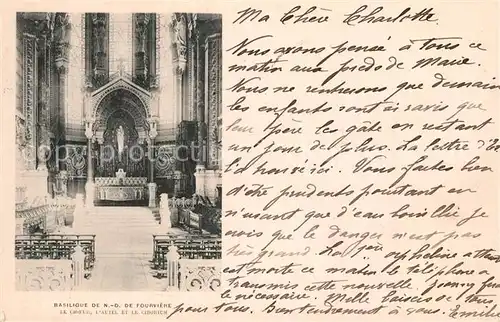 BASILIQUE DE N.-D. DE FOURVIÈRE
LE CHŒUR, L'AUTEL ET LE CIBORIUM
Ma Chère Charlotte.
Nous avons pensé à tous ce
matin aux pieds de Marie.
Nous ne rentrerons que demain
les enfants sont si ravis que
leur père les gâte en restant
un jour de plus. La lettre d'
ici. Vous faites bien
d'être prudents pourtant en
n'usant que d'eau bouillie je
crois que le danger n'est pas
très grand. orpheline
est morte ce matin le téléphone a
transmis cette nouvelle.
le nécessaire. Mille baisers de tous
pour tous. à vous. Emilie